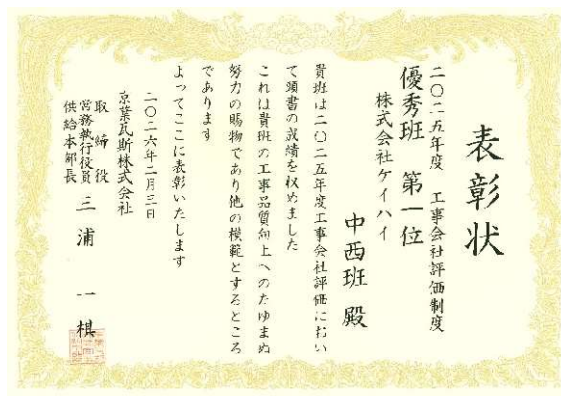 表彰状
二〇二五年度 工事会社評価制度
優秀班 第一位
株式会社ケイハイ
中西班 殿
貴班は二〇二五年度工事会社評価におい
て頭書の成績を収めました
これは貴班の工事品質向上へのたゆまぬ
努力の賜物であり他の模範とするところ
であります
よってここに表彰いたします
二〇二六年二月三日
京葉瓦斯株式会社
取締役
常務執行役員
供給本部長
三浦 一棋